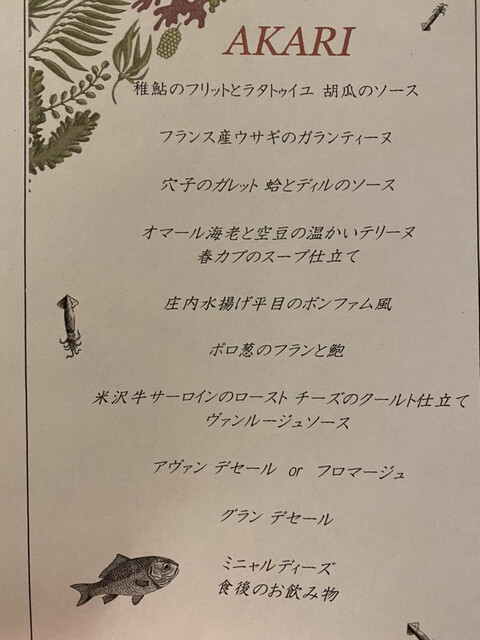 AKARI
稚鮎のフリットとラタトゥイユ 胡瓜のソース
フランス産ウサギのガランティーヌ
穴子のガレット 蛤とディルのソース
オマール海老と空豆の温かいテリーヌ
春カブのスープ仕立て
庄内水揚げ平目のボンファム風
ポロ葱のフランと鮑
米沢牛サーロインのロースト チーズのクールト仕立て
ヴァンルージュソース
アヴァン デセール or フロマージュ
グラン デセール
ミニャルディーズ
食後のお飲み物